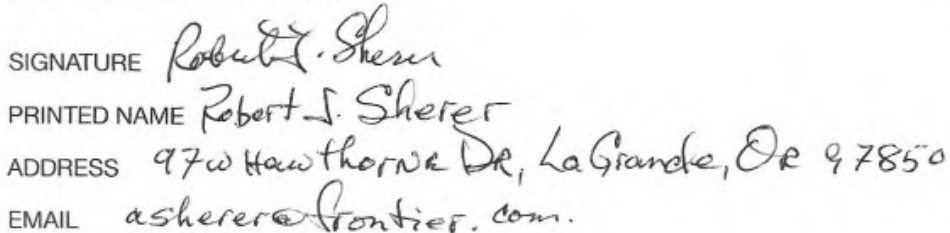 SIGNATURE Robert J. Sherer
PRINTED NAME Robert J. Sherer
ADDRESS 97 W Hawthorne DR, La Grande, OR 97850
EMAIL asherer@frontier.com.